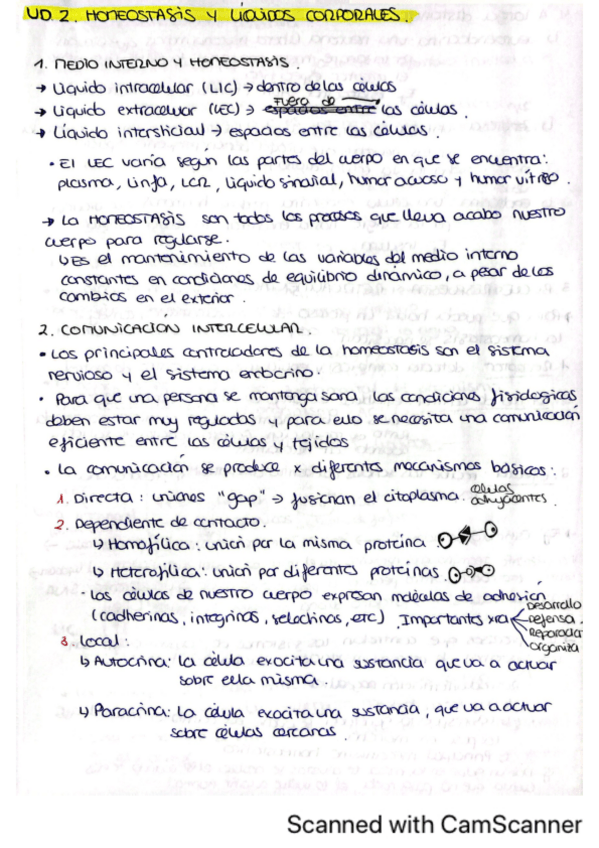 UD. 2. HOMEOSTASIS Y LÍQUIDOS CORPORALES.
1. MEDIO INTERNO Y HOMEOSTASIS.
→ Líquido intracelular (LIC) → dentro de las células
→ Líquido extracelular (LEC) → fuera de las células.
→ Líquido intersticial → espacios entre las células.
• El LEC varía según las partes del cuerpo en que se encuentra:
plasma, linfa, LCR, líquido sinovial, humor acuoso y humor vítreo.
→ La HOMEOSTASIS son todos los procesos que lleva acabo nuestro
cuerpo para regularse.
↳ Es el mantenimiento de las variables del medio interno
constantes en condiciones de equilibrio dinámico, a pesar de los
cambios en el exterior.
2. COMUNICACIÓN INTERCELULAR.
• Los principales controladores de la homeostasis son el sistema
nervioso y el sistema endocrino.
• Para que una persona se mantenga sana, las condiciones fisiológicas
deben estar muy reguladas y para ello se necesita una comunicación
eficiente entre las células y tejidos.
• La comunicación se produce x diferentes mecanismos básicos:
1. Directa: uniones "gap" → fusionan el citoplasma. células adyacentes.
2. Dependiente de contacto.
↳ Homofílica: unión por la misma proteína.
↳ Heterofílica: unión por diferentes proteínas.
• Las células de nuestro cuerpo expresan moléculas de adhesión
(cadherinas, integrinas, selectinas, etc). Importantes xa
Desarrollo
defensa.
Reparación
organiza
3. Local:
↳ Autocrina: la célula exocita una sustancia que va a actuar
sobre ella misma.
↳ Paracrina: La célula exocita una sustancia, que va a actuar
sobre células cercanas.
Scanned with CamScanner